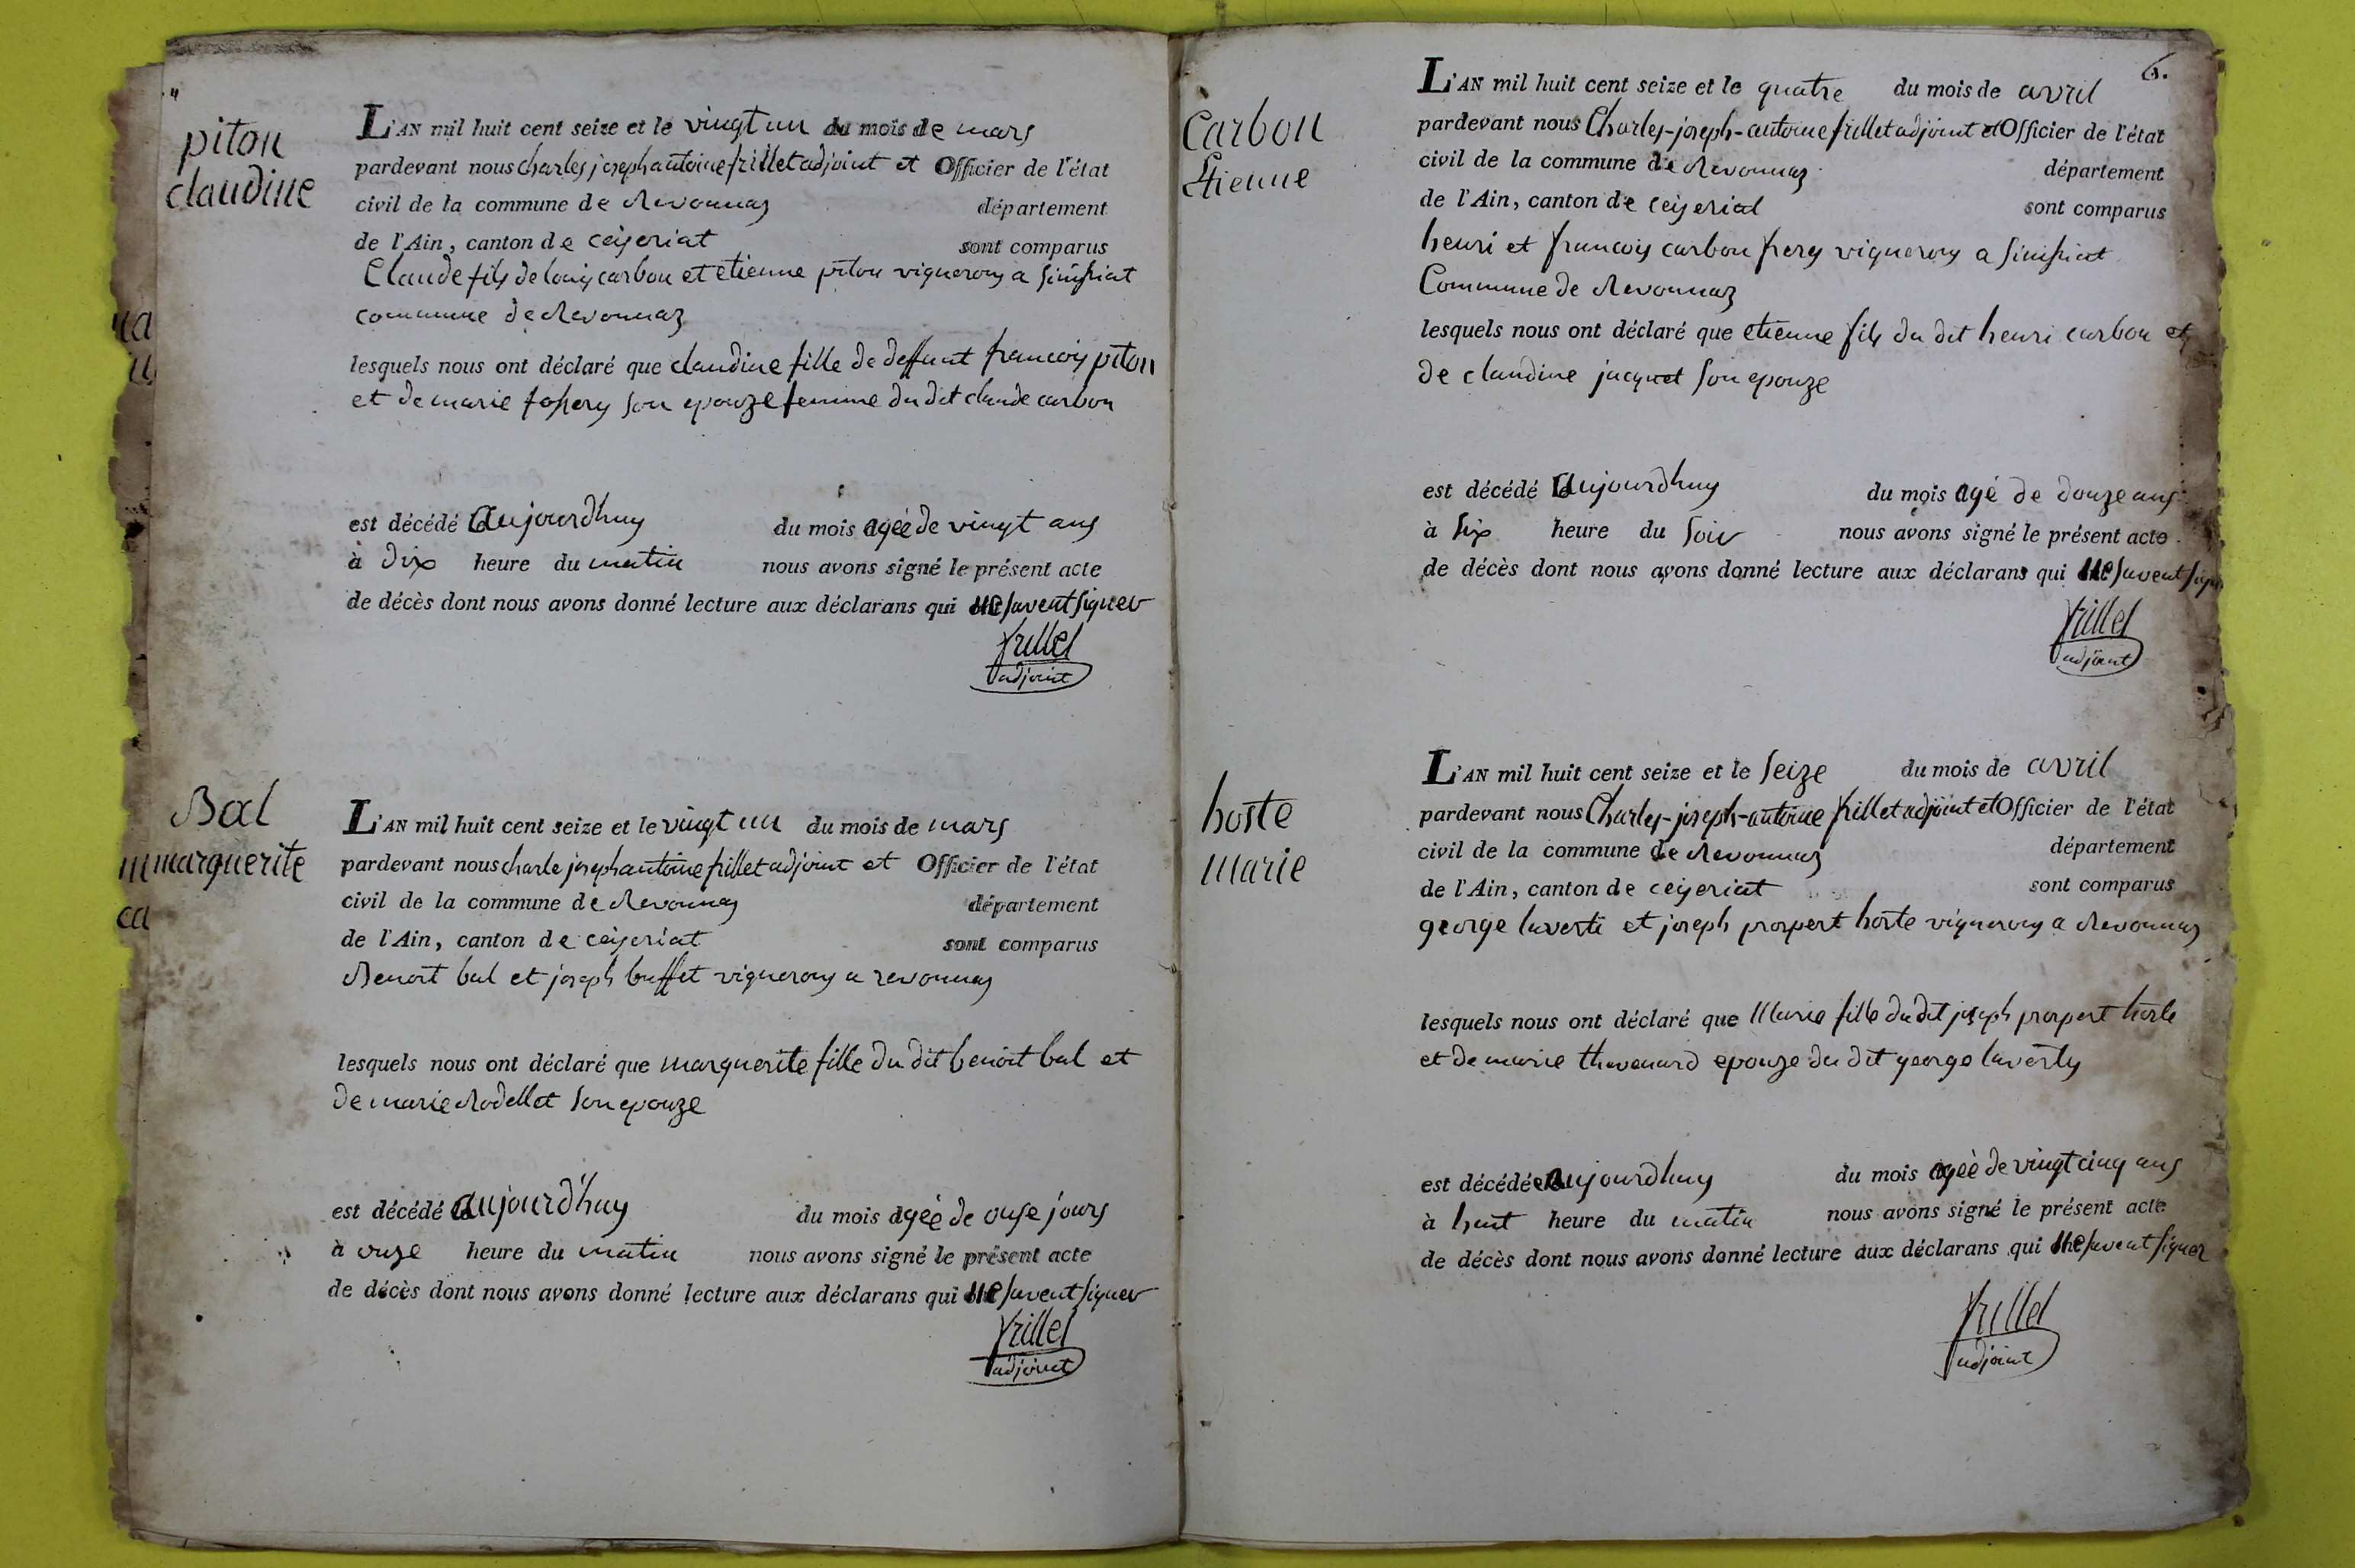 piton
claudine
L'AN mil huit cent seize et le vingt un du mois de mars
pardevant nous charles joseph antoine frillet adjoint et Officier de l'état
civil de la commune de Revonnas département
de l'Ain, canton de ceyseriat sont comparus
Claude fils de louis carbon et etienne piton vignerons a Simssiat
commune de Revonnaz
lesquels nous ont déclaré que claudine fille de deffunt francois piton
et de marie son epouze femme du dit claude carbon
est décédé aujourdhuy du mois agéé de vingt ans
à dix heure du matin nous avons signé le présent acte
de décès dont nous avons donné lecture aux déclarans qui ne savent signer
frillet
adjoint
Bal
marguerite
L'AN mil huit cent seize et le vingt un du mois de mars
pardevant nous charle joseph antoine frillet adjoint et Officier de l'état
civil de la commune de Revonnas département
de l'Ain, canton de ceyseriat sont comparus
Benoit bal et joseph buffet vignerons a revonnas
lesquels nous ont déclaré que marguerite fille du dit benoit bal et
de marie Rodellet son epouze
est décédé aujourd'huy du mois agéé de onse jours
à onze heure du matin nous avons signé le présent acte
de décès dont nous avons donné lecture aux déclarans qui ne savent signer
frillet
adjoint
6.
Carbon
Etienne
L'AN mil huit cent seize et le quatre du mois de avril
pardevant nous Charles-joseph-antoine frillet adjoint et Officier de l'état
civil de la commune de Revonnaz département
de l'Ain, canton de ceyseriat sont comparus
henri et francois carbon frers vignerons a Simssiat
Commune de Revonnaz
lesquels nous ont déclaré que etienne fils du dit henri carbon et
de claudine jacquet son epouze
est décédé aujourdhuy du mois agé de douze ans
à six heure du soir nous avons signé le présent acte
de décès dont nous avons donné lecture aux déclarans qui ne savent
frillet
adjoint
hoste
marie
L'AN mil huit cent seize et le seize du mois de avril
pardevant nous Charles-joseph-antoine frillet adjoint et Officier de l'état
civil de la commune de Revonnaz département
de l'Ain, canton de ceyseriat sont comparus
george laverti et joseph prospert hoste vignerons a Revonnas
lesquels nous ont déclaré que Marie fille du dit joseph prospert hoste
et de marie thevenard epouze du dit george laverty
est décédé aujourdhuy du mois agéé de vingt cinq ans
à huit heure du matin nous avons signé le présent acte
de décès dont nous avons donné lecture aux déclarans qui ne savent signer
frillet
adjoint